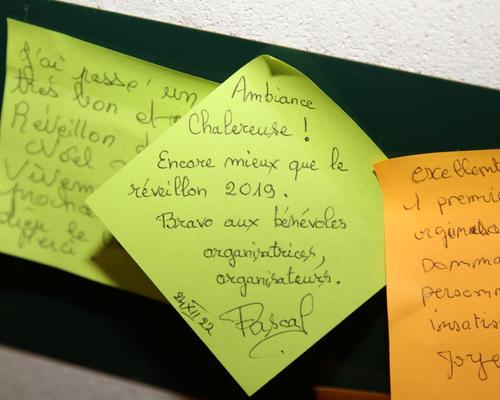 J'ai passé un
très bon et
Réveillon d
Noël
Vivem
procha
Merci
Ambiance
Chalereuse !
Encore mieux que le
réveillon 2019.
Bravo aux bénévoles
organisatrices,
organisateurs.
24 XII 22
Pascal
excellent
1 premie
Domma
personn
insatis
Jorge